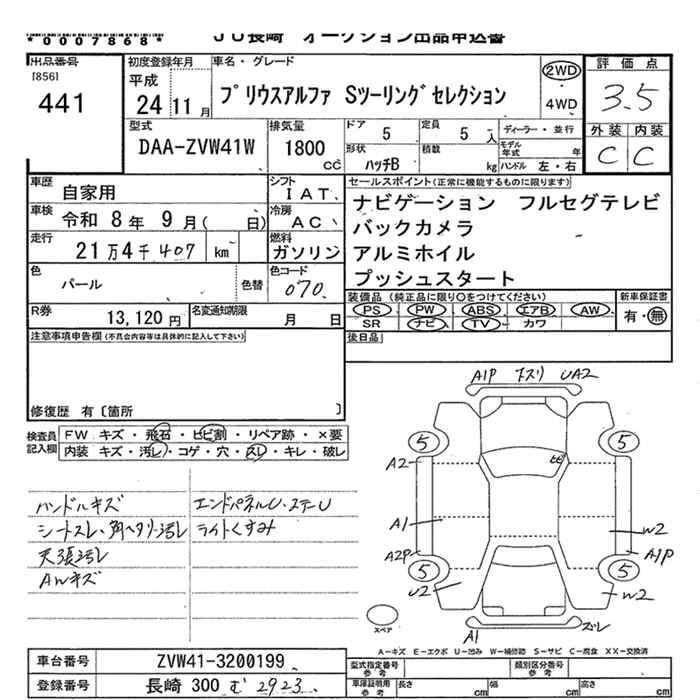 *0007868* JU長崎 オークション出品申込書
出品番号 [856] 441
初度登録年月 平成 24 11月
車名・グレード プリウスアルファ Sツーリングセレクション
2WD 4WD
評価点 3.5
外装 内装 C C
型式 DAA-ZVW41W
排気量 1800 cc
ドア 5 定員 5 人 ディーラー・並行
形状 ハッチB 積数 kg モデル年式 年 ハンドル 左・右
車歴 自家用
車検 令和 8年 9月( 日)
走行 21万4千407 km
シフト IAT
冷房 AC
燃料 ガソリン
セールスポイント(正常に機能するものに限ります)
ナビゲーション フルセグテレビ
バックカメラ
アルミホイル
プッシュスタート
色 パール 色替 色コード 070
R券 13,120円 名変通知期限 月 日
装備品(純正品に限り○をつけてください) 新車保証書
PS PW ABS エアB AW 有・無
SR ナビ TV カワ
注意事項申告欄(不具合内容等は具体的に記入して下さい)
後日品
修復歴 有〔箇所 〕
検査員記入欄 FW キズ・飛石・ヒビ割・リペア跡・×要
内装 キズ・汚レ・コゲ・穴・スレ・キレ・破レ
ハンドルキズ エンドパネルU・ステーU
シートスレ、内ヘタリ汚レ ライトくすみ
天張汚レ
AWキズ
A1P キズリ UA2
5 5
A2 ヒビ
A1 W2
A2P A1P
5 5
U2 W2
スペア
A1 ズレ
A－キズ E－エクボ U－凹み W－補修跡 S－サビ C－腐食 XX－交換済
車台番号 ZVW41-3200199
登録番号 長崎 300 む 2923
型式指定番号 参考 類別区分番号 参考
車庫証明用 参考 長さ cm 幅 cm 高さ cm